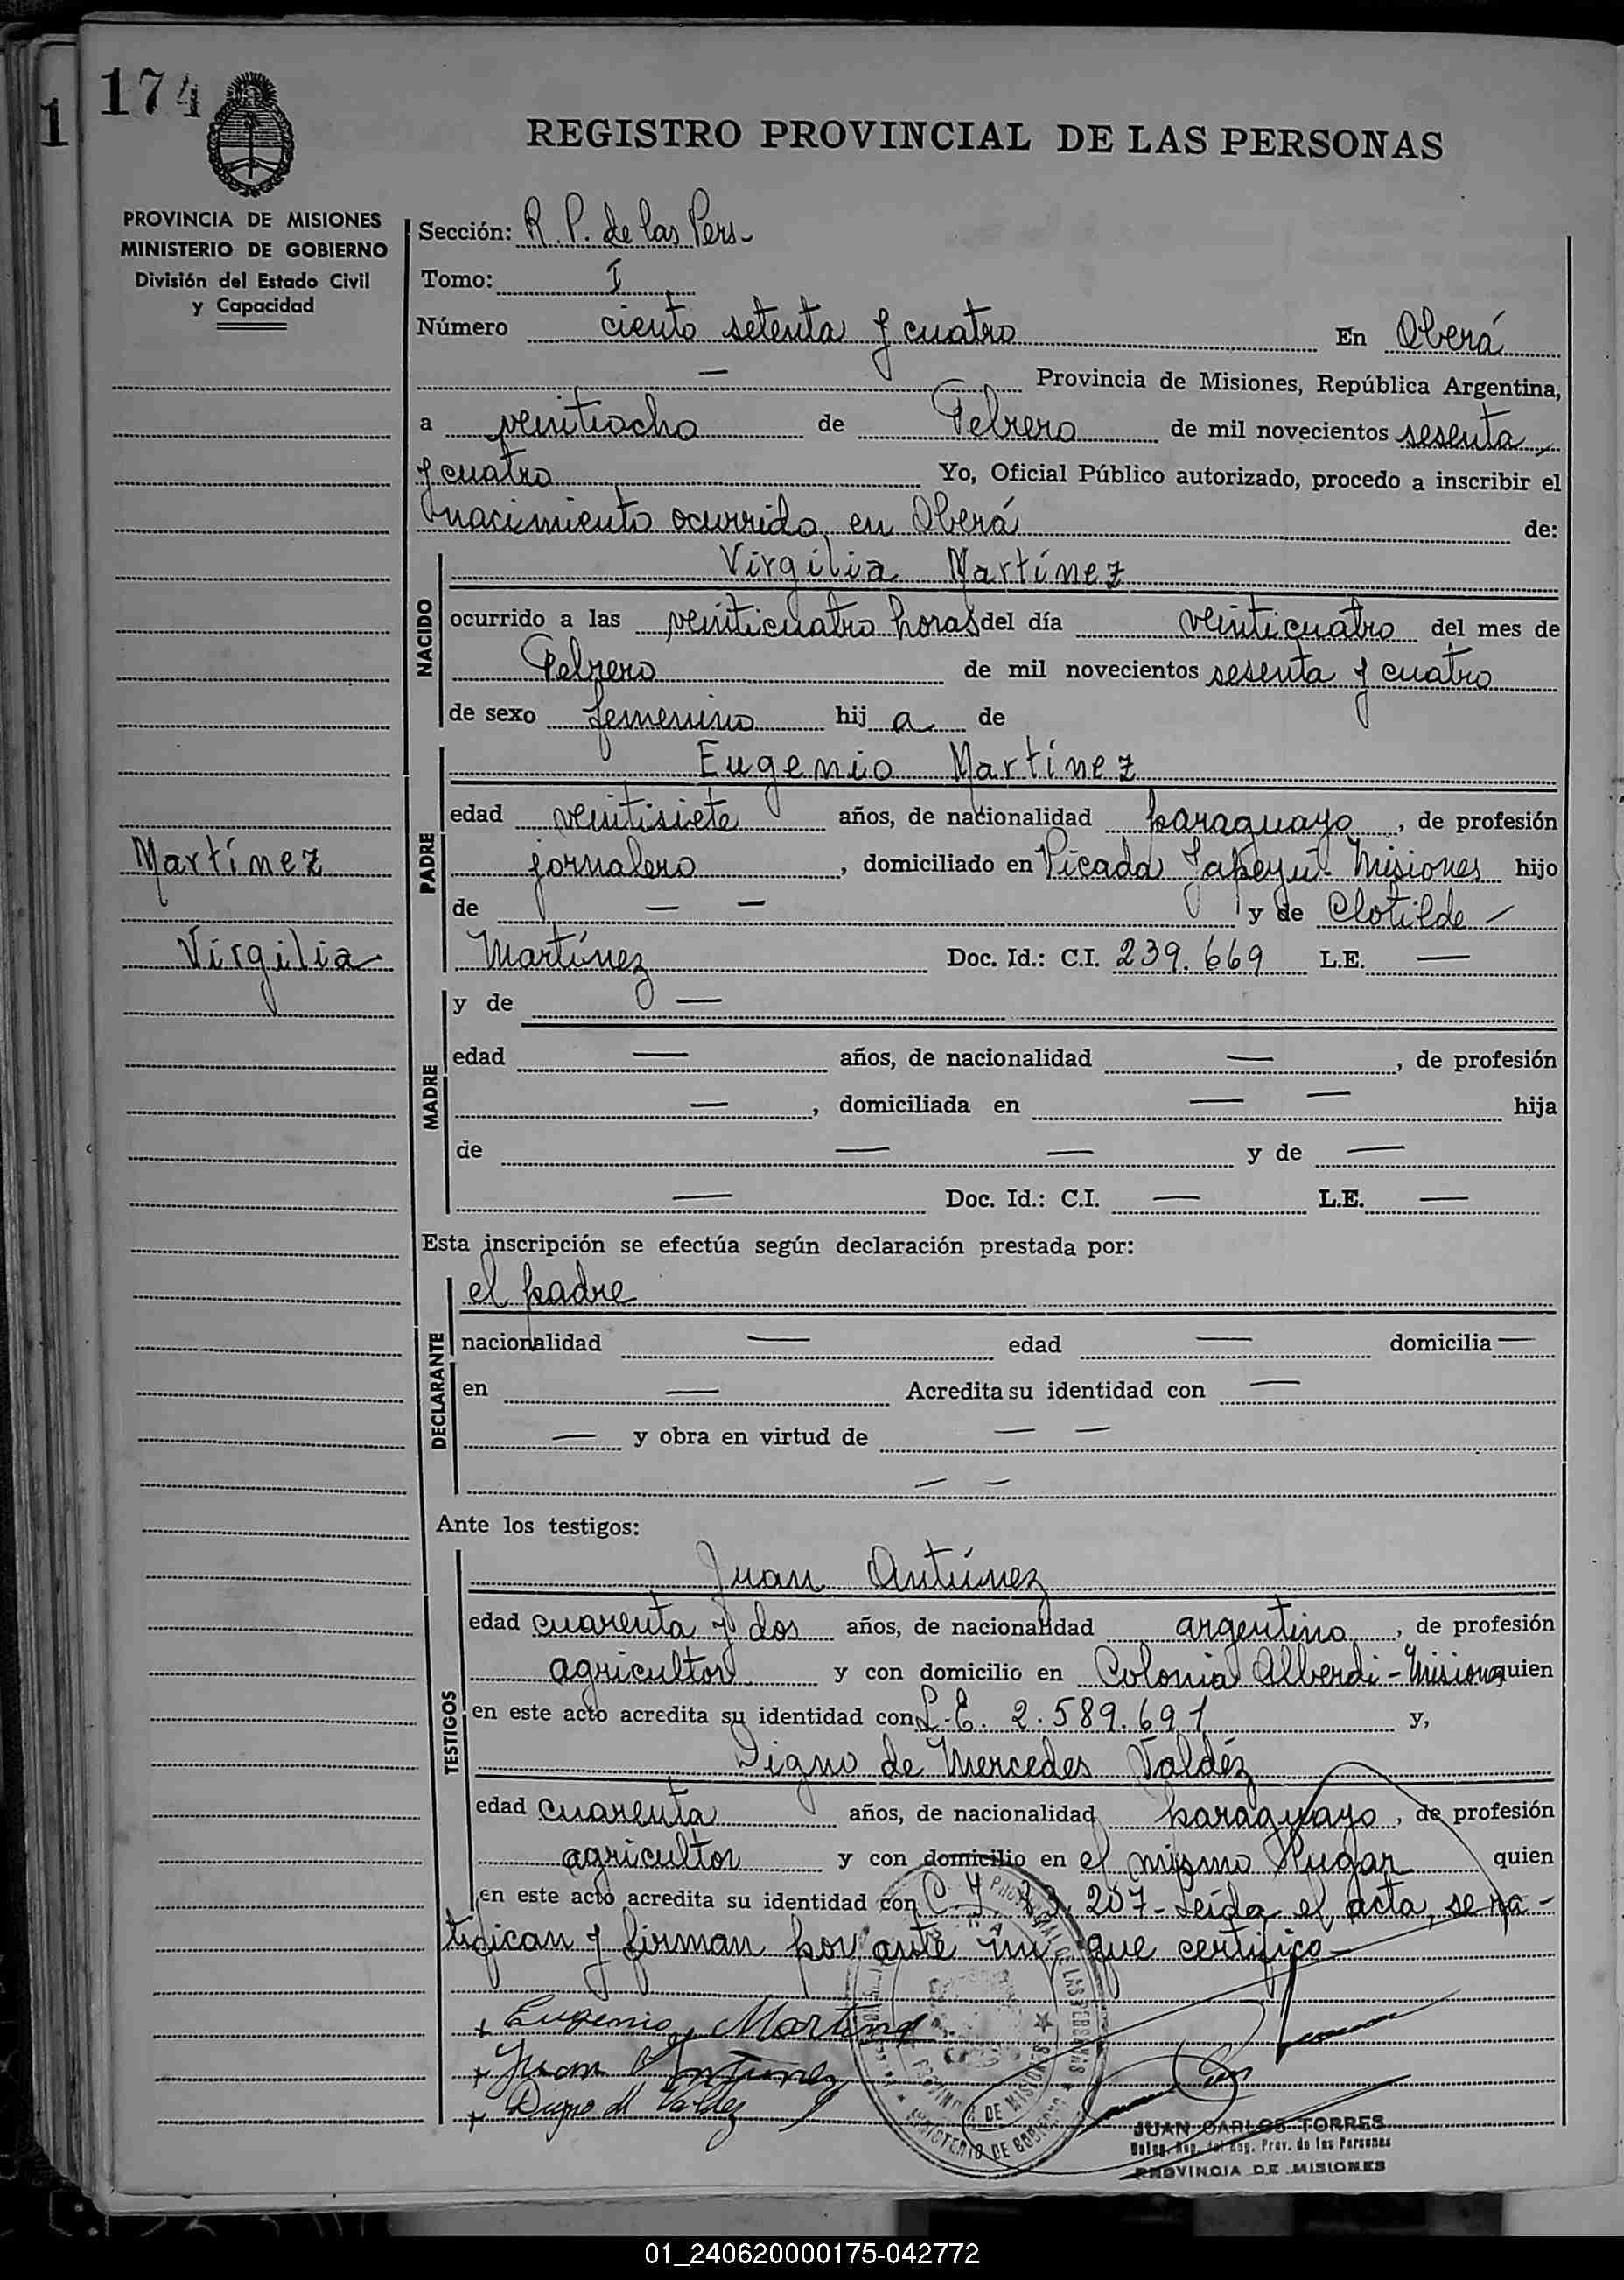 174
1
REGISTRO PROVINCIAL DE LAS PERSONAS
PROVINCIA DE MISIONES
MINISTERIO DE GOBIERNO
División del Estado Civil
y Capacidad
Sección: R. P. de las Pers-
Tomo: I
Número ciento setenta y cuatro En Oberá
— Provincia de Misiones, República Argentina,
a veintiocho de Febrero de mil novecientos sesenta
y cuatro Yo, Oficial Público autorizado, procedo a inscribir el
nacimiento ocurrido en Oberá de:
NACIDO
Virgilia Martínez
ocurrido a las veinticuatro horas del día veinticuatro del mes de
Febrero de mil novecientos sesenta y cuatro
de sexo femenino hij a de
PADRE
Eugenio Martínez
edad veintisiete años, de nacionalidad paraguayo, de profesión
jornalero, domiciliado en Picada Yapeyú - Misiones hijo
de — — y de Clotilde —
Martínez Doc. Id.: C.I. 239.669 L.E. —
Martínez
Virgilia
MADRE
y de —
edad — años, de nacionalidad —, de profesión
—, domiciliada en — — hija
de — — y de —
— Doc. Id.: C.I. — L.E. —
Esta inscripción se efectúa según declaración prestada por:
DECLARANTE
el padre
nacionalidad — edad — domicilia —
en — Acredita su identidad con —
— y obra en virtud de — —
— —
Ante los testigos:
TESTIGOS
Juan Antúnez
edad cuarenta y dos años, de nacionalidad argentino, de profesión
agricultor y con domicilio en Colonia Alberdi - Misiones quien
en este acto acredita su identidad con L.E. 2.589.691 y,
Digno de Mercedes Valdéz
edad cuarenta años, de nacionalidad paraguayo, de profesión
agricultor y con domicilio en el mismo lugar quien
en este acto acredita su identidad con C. 207 - Leída el acta, se ra-
tifican y firman por ante mí que certifico-
x Eugenio Martinez
x Juan Antunez
x Digno M Valdez
PROVINCIAL DE LAS PERSONAS
MINISTERIO DE GOBIERNO
PROVINCIA DE MISIONES
JUAN CARLOS TORRES
Reg. Prov. de las Personas
PROVINCIA DE MISIONES
01_240620000175-042772